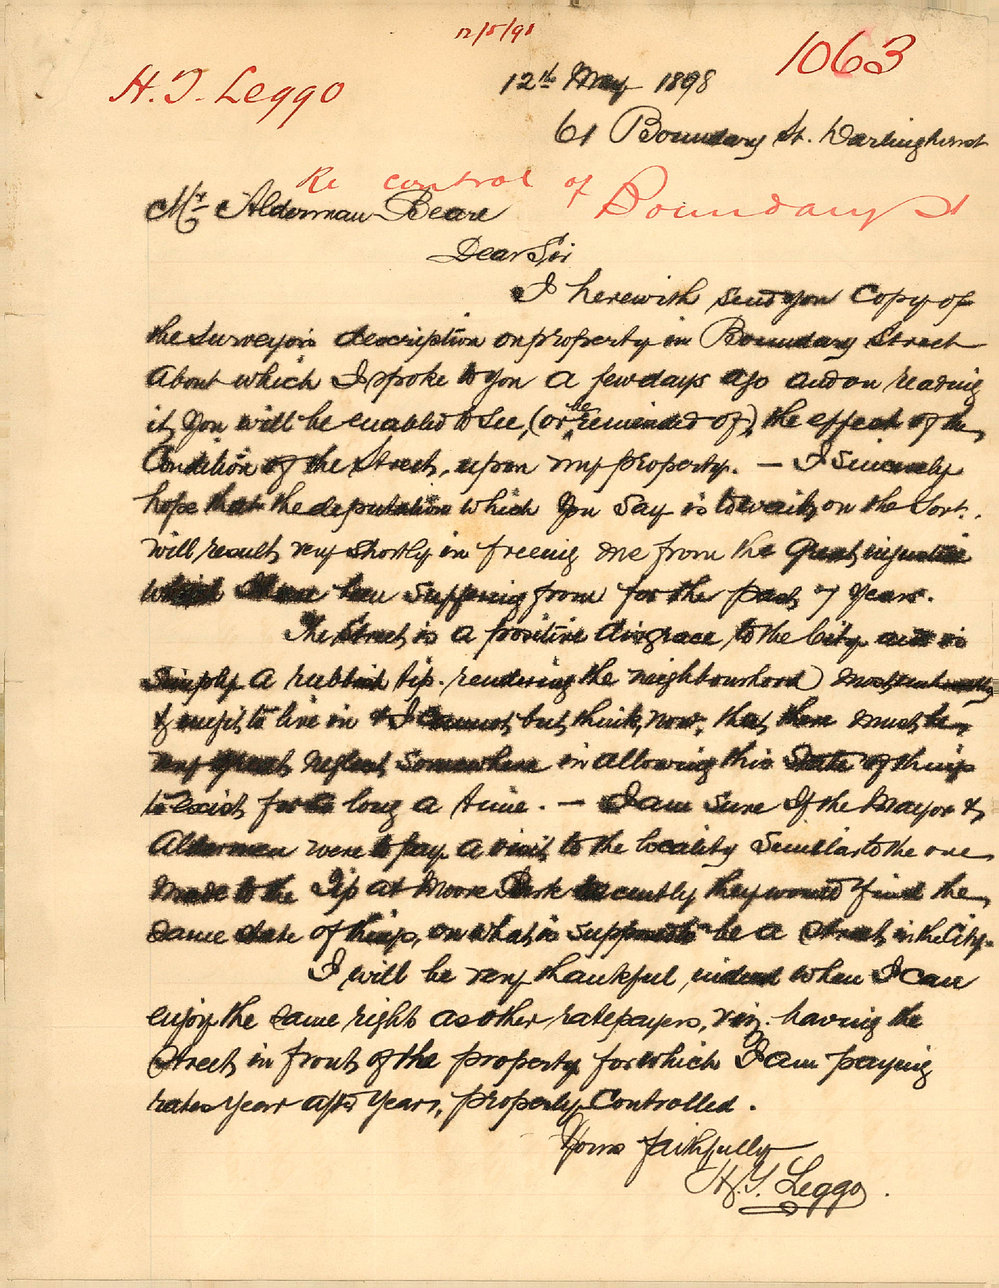 12/5/98
1063
H.T. Leggo
12th May 1898
61 Boundary St. Darlinghurst
Re control of Boundary St
Mr. Alderman Beare
Dear Sir
I herewith send you Copy of
the Surveyor's description on property in Boundary Street
About which I spoke to you a few days ago and on reading
it, you will be enabled to see, (or be reminded of), the effect of the
Condition of the Street, upon my property. — I Sincerely
hope that the deputation which you say is to wait on the Govt.
will result very shortly in freeing me from the great injustice
which I have been suffering from for the past 7 years.
The Street is a positive disgrace to the City and is
Simply a rubbish tip. rendering the neighbourhood most
& unfit to live in & I cannot but think, now, that there must be
very great neglect Somewhere in allowing this State of things
to exist for so long a time. — I am Sure If the Mayor &
Aldermen were to pay a visit to the locality Similar to the one
made to the Tip at Moore Park recently they would find the
same state of things, on what is supposed to be a street in the City.
I will be very thankful, indeed when I can
enjoy the same right as other ratepayers, viz. having the
Street in front of the property for which I am paying
rates Year after Year, properly Controlled.
Yours faithfully
H.T. Leggo.